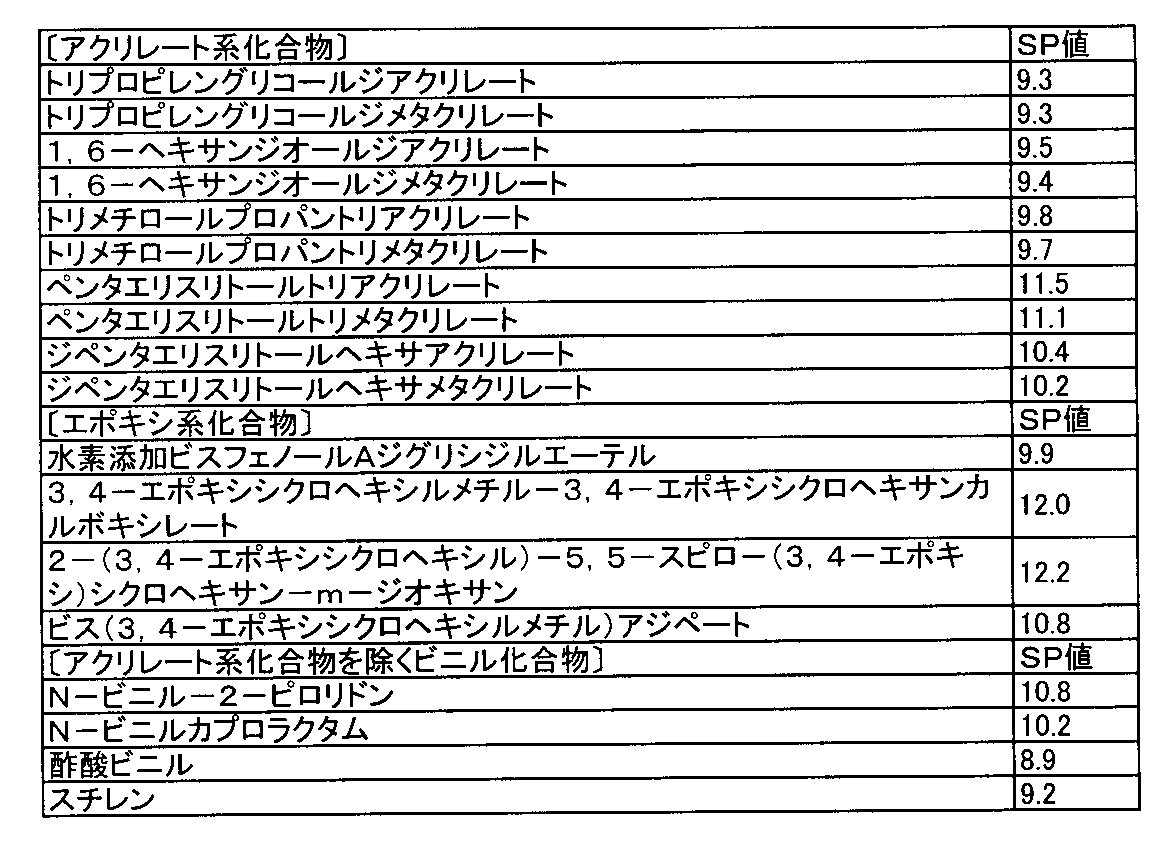 〔アクリレート系化合物〕 SP値
トリプロピレングリコールジアクリレート 9.3
トリプロピレングリコールジメタクリレート 9.3
1, 6－ヘキサンジオールジアクリレート 9.5
1, 6－ヘキサンジオールジメタクリレート 9.4
トリメチロールプロパントリアクリレート 9.8
トリメチロールプロパントリメタクリレート 9.7
ペンタエリスリトールトリアクリレート 11.5
ペンタエリスリトールトリメタクリレート 11.1
ジペンタエリスリトールヘキサアクリレート 10.4
ジペンタエリスリトールヘキサメタクリレート 10.2
〔エポキシ系化合物〕 SP値
水素添加ビスフェノールAジグリシジルエーテル 9.9
3, 4－エポキシシクロヘキシルメチル－3, 4－エポキシシクロヘキサンカ
ルボキシレート 12.0
2－(3, 4－エポキシシクロヘキシル)－5, 5－スピロー(3, 4－エポキ
シ)シクロヘキサン－m－ジオキサン 12.2
ビス(3, 4－エポキシシクロヘキシルメチル)アジペート 10.8
〔アクリレート系化合物を除くビニル化合物〕 SP値
N－ビニル－2－ピロリドン 10.8
N－ビニルカプロラクタム 10.2
酢酸ビニル 8.9
スチレン 9.2